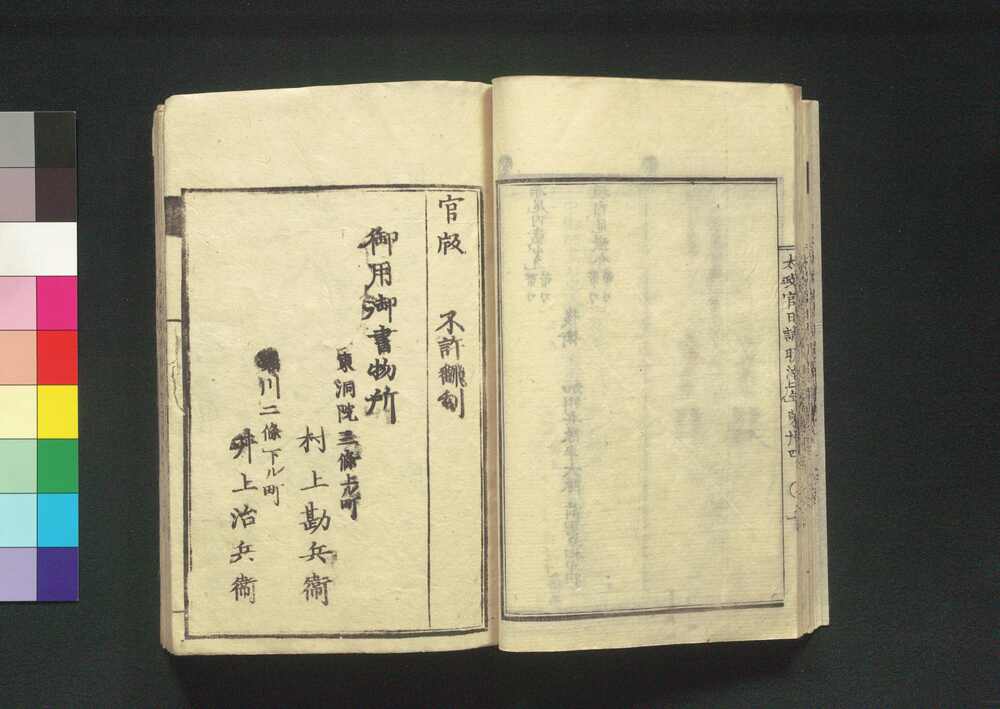 太政官日誌明治
官版　不許翻刻
御用御書物所
東洞院三條上ル町
村上勘兵衞
川二條下ル町
井上治兵衞